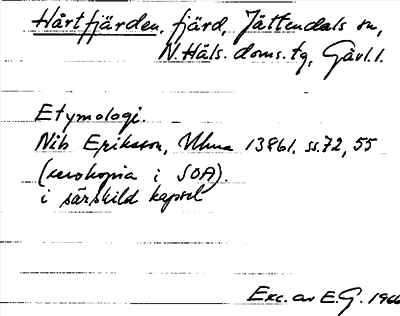 Hårtfjärden, fjärd, Jättendals sn,
N. Häls. doms. tg, Gävl. l.
Etymologi.
Nils Eriksson, Uma 13861, ss. 72, 55
(xerokopia i SOA).
i särskild kapsel
Exc. av E.G. 1966